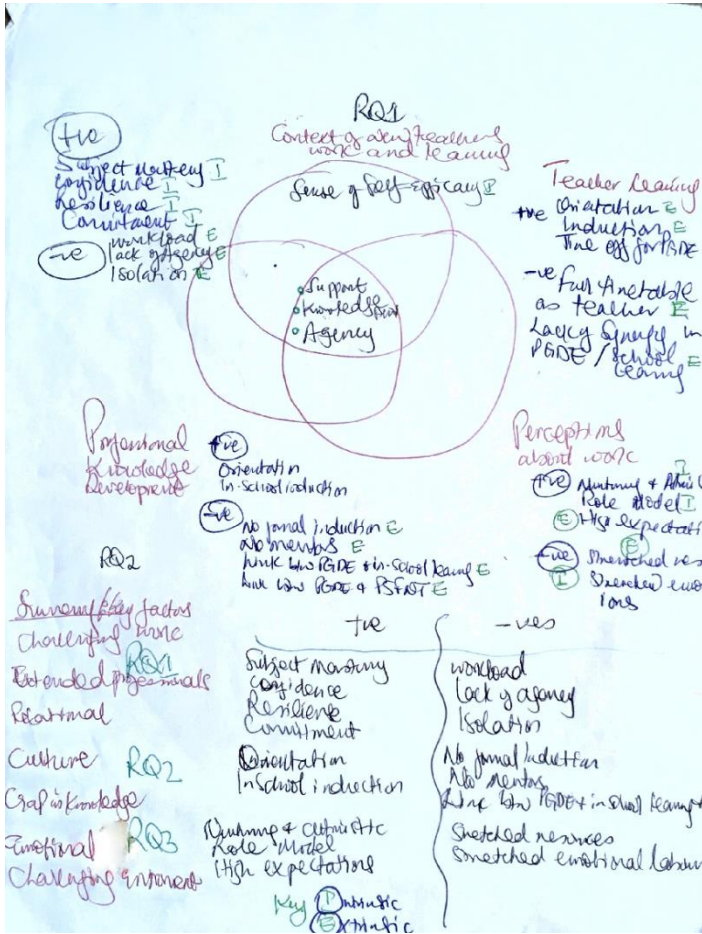 RQ1
Context of new teachers
work and learning
Sense of Self-efficacy I
+ve
Subject Mastery I
Confidence I
Resilience I
Comitment I
-ve
workload E
lack of Agency E
Isolation E
Support
Knowledge
Agency
Teacher learning
+ve Orientation E
Induction E
Time off for PGDE
-ve Full timetable
as teacher E
Lack of Synergy in
PGDE / School E
learning
Professional
Knowledge
Development
+ve
Orientation
In-School induction
-ve
No formal induction E
No mentors E
Link btw PGDE & in-school learning E
Link btw PGDE & E
Perceptions
about work
+ve Nurturing & I
Role Model I
E High expectati
-ve Stretched res
E
I Stretched emo
ions
RQ2
Summary key factors
Challenging work
RQ1
Extended professionals
Relational
Culture RQ2
Gap in Knowledge
Emotional RQ3
Challenging
+ve
Subject Mastery
Confidence
Resilience
Commitment
Orientation
InSchool induction
Nurturing &
Role Model
High expectations
-ves
workload
Lack of agency
Isolation
No formal induction
No mentors
Link btw PGDE & in school learning
Stretched resources
Stretched emotional labour
Key I Intrinsic
E Extrinsic